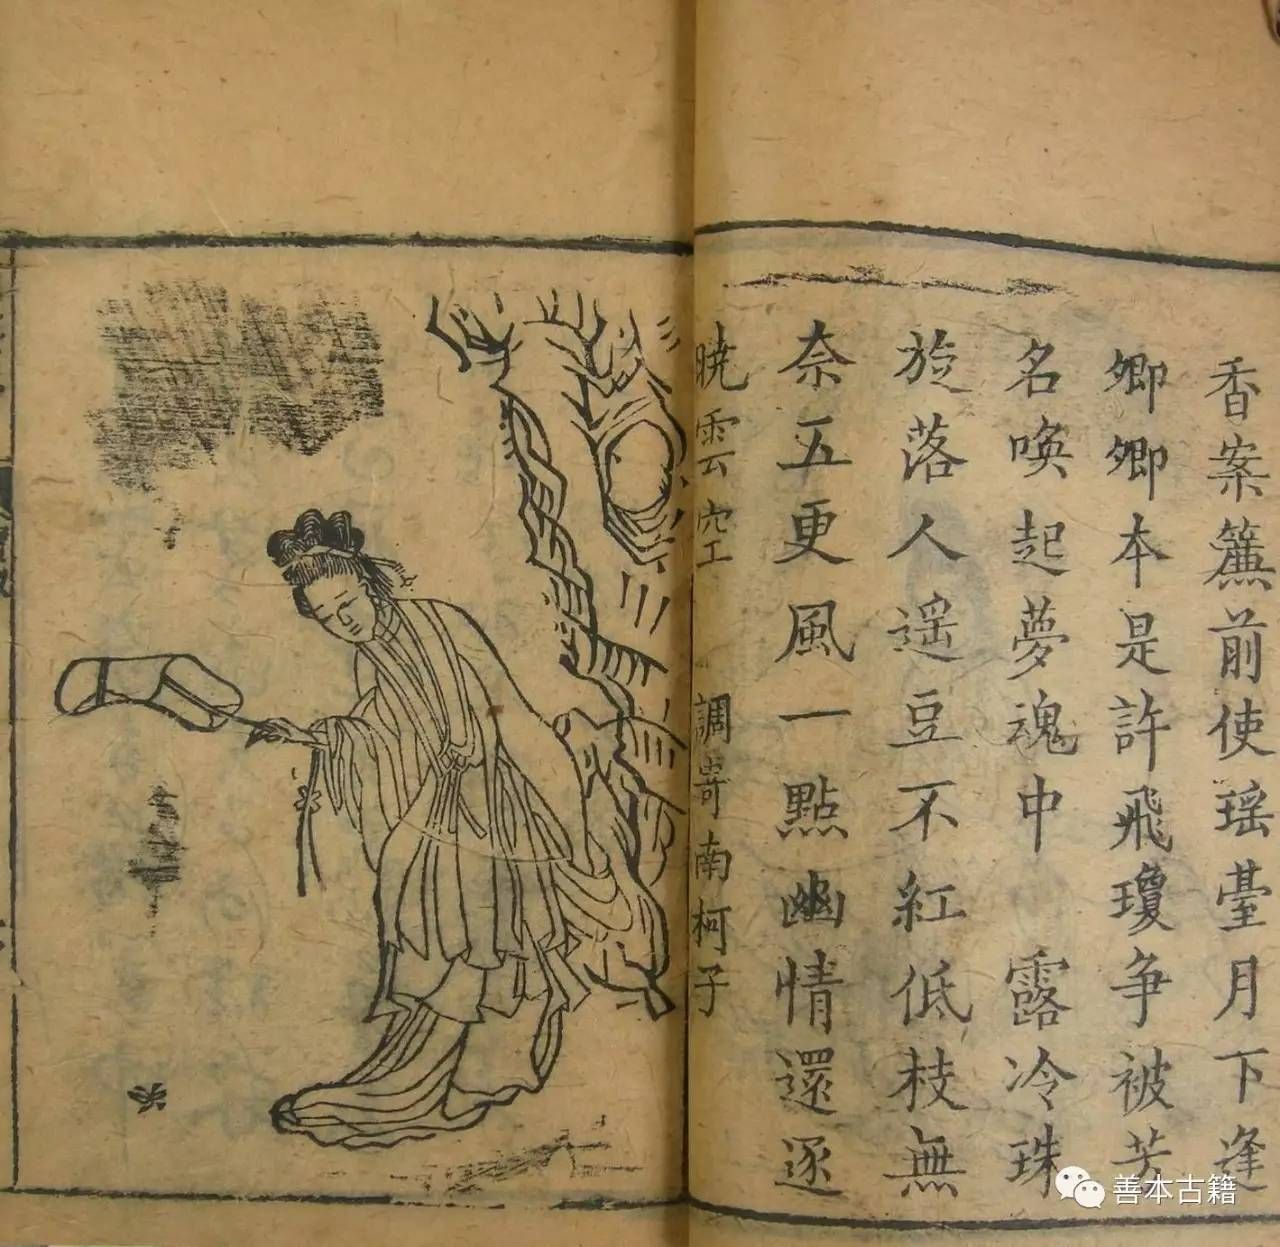 香案簾前使瑤臺月下逢
卿卿本是許飛瓊爭被芳
名喚起夢魂中　露冷珠
旋落人遥豆不紅低枝無
奈五更風一點幽情還逐
曉雲空　調寄南柯子
善本古籍